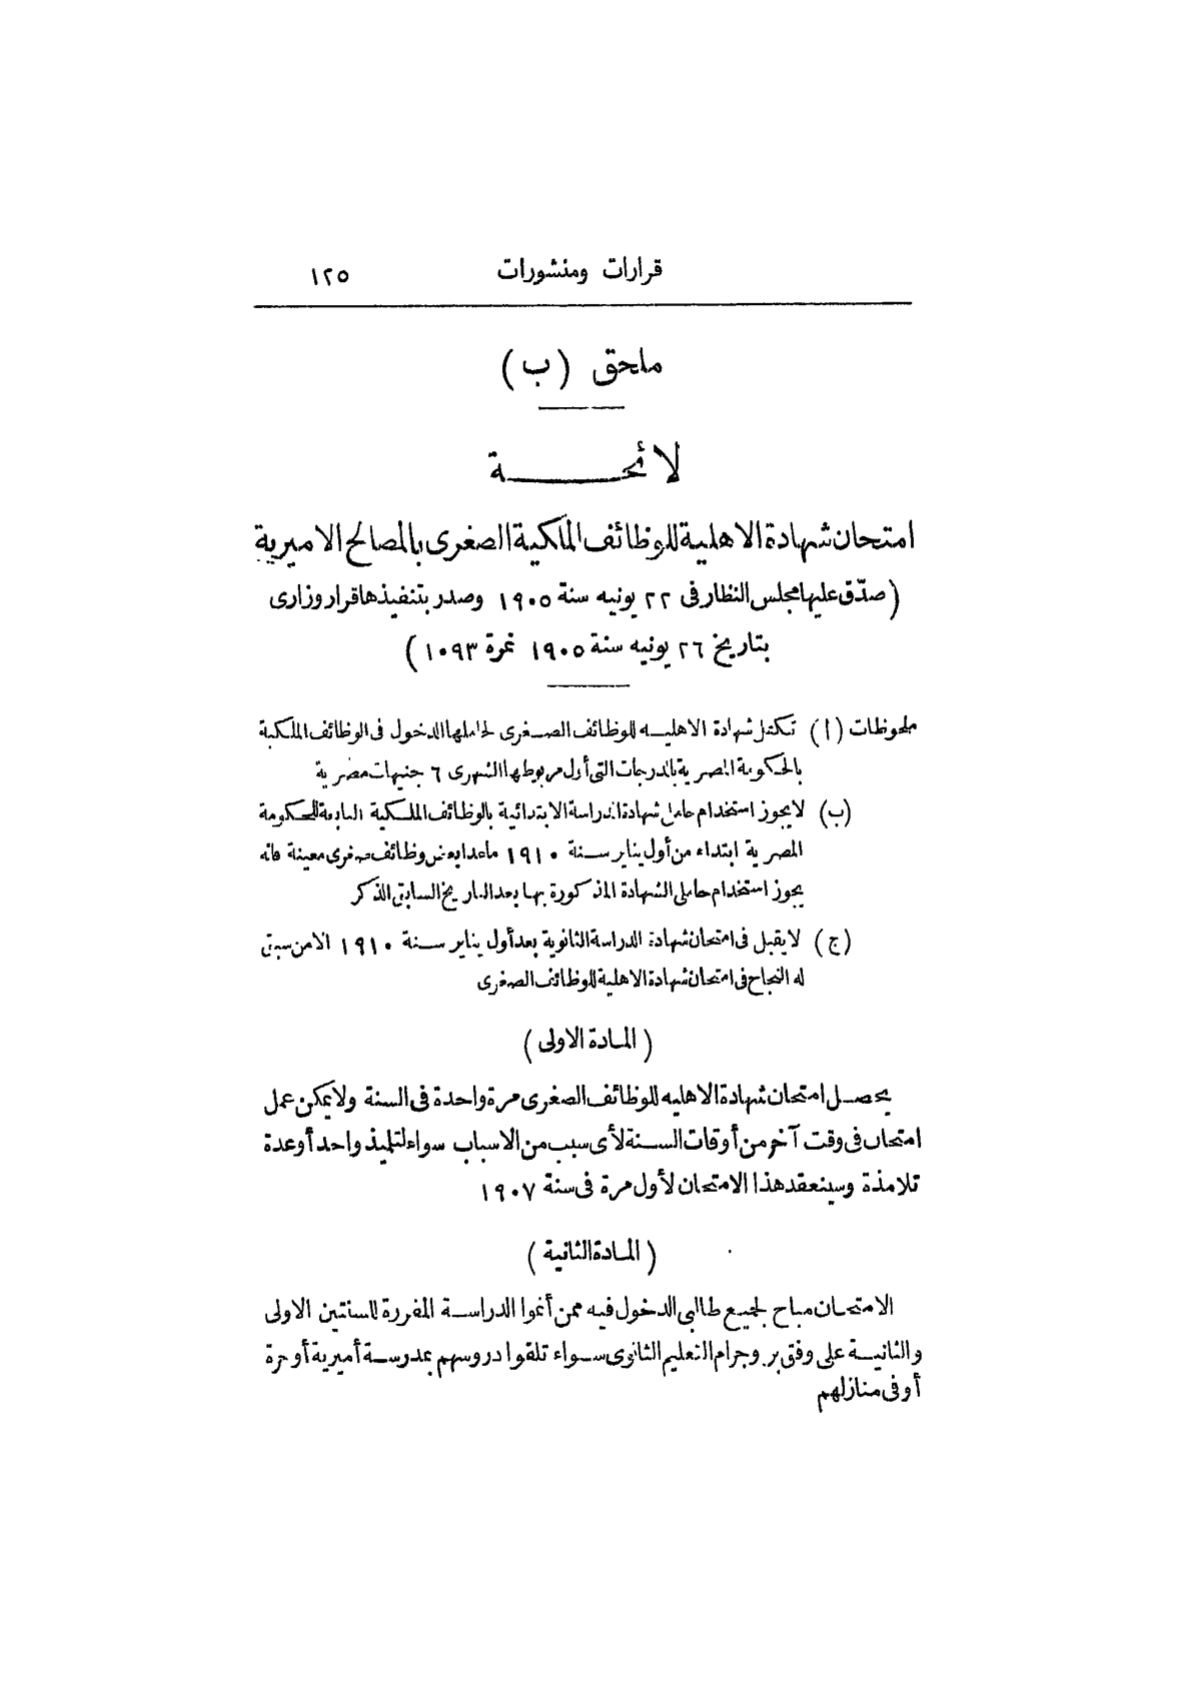 قرارات ومنشورات ١٢٥
ملحق (ب)
لائحـــــــة
امتحان شهادة الاهلية للوظائف الملكية الصغرى بالمصالح الاميرية
(صدّق عليها مجلس النظار فى ٢٢ يونيه سنة ١٩٠٥ وصدر بتنفيذها قرار وزارى
بتاريخ ٢٦ يونيه سنة ١٩٠٥ نمرة ١٠٩٣)
ملحوظات (ا) تكفل شهادة الاهليـه للوظائف الصـغرى لحاملها الدخول فى الوظائف الملكية
بالحكومة المصرية بالدرجات التى أول مربوطها الشهرى ٦ جنيهات مصرية
(ب) لا يجوز استخدام حاملى شهادة الدراسة الابتدائية بالوظائف الملكية التابعة للحكومة
المصرية ابتداء من أول يناير سـنة ١٩١٠ ماعدا بعض وظائف صغرى معينة فانه
يجوز استخدام حاملى الشهادة المذكورة بها بعد التاريخ السابق الذكر
(ج) لا يقبل فى امتحان شهادة الدراسة الثانوية بعد أول يناير سـنة ١٩١٠ الا من سبق
له النجاح فى امتحان شهادة الاهلية للوظائف الصغرى
(المادة الاولى)
يحصـل امتحان شهادة الاهليه للوظائف الصغرى مرة واحدة فى السنة ولا يمكن عمل
امتحان فى وقت آخر من أوقات السـنة لأى سبب من الاسباب سواء لتلميذ واحد أو عدة
تلامذة وسينعقد هذا الامتحان لأول مرة فى سنة ١٩٠٧
(المادة الثانية)
الامتحـان مباح لجميع طالبى الدخول فيه ممن أتموا الدراسـة المقررة للسنتين الاولى
والثانيـة على وفق بروجرام التعليم الثانوى سـواء تلقوا دروسهم بمدرسـة أميرية أو حرة
أو فى منازلهم